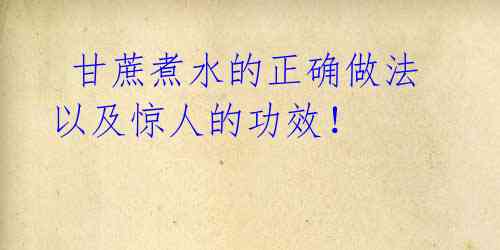 甘蔗煮水的正确做法
以及惊人的功效！